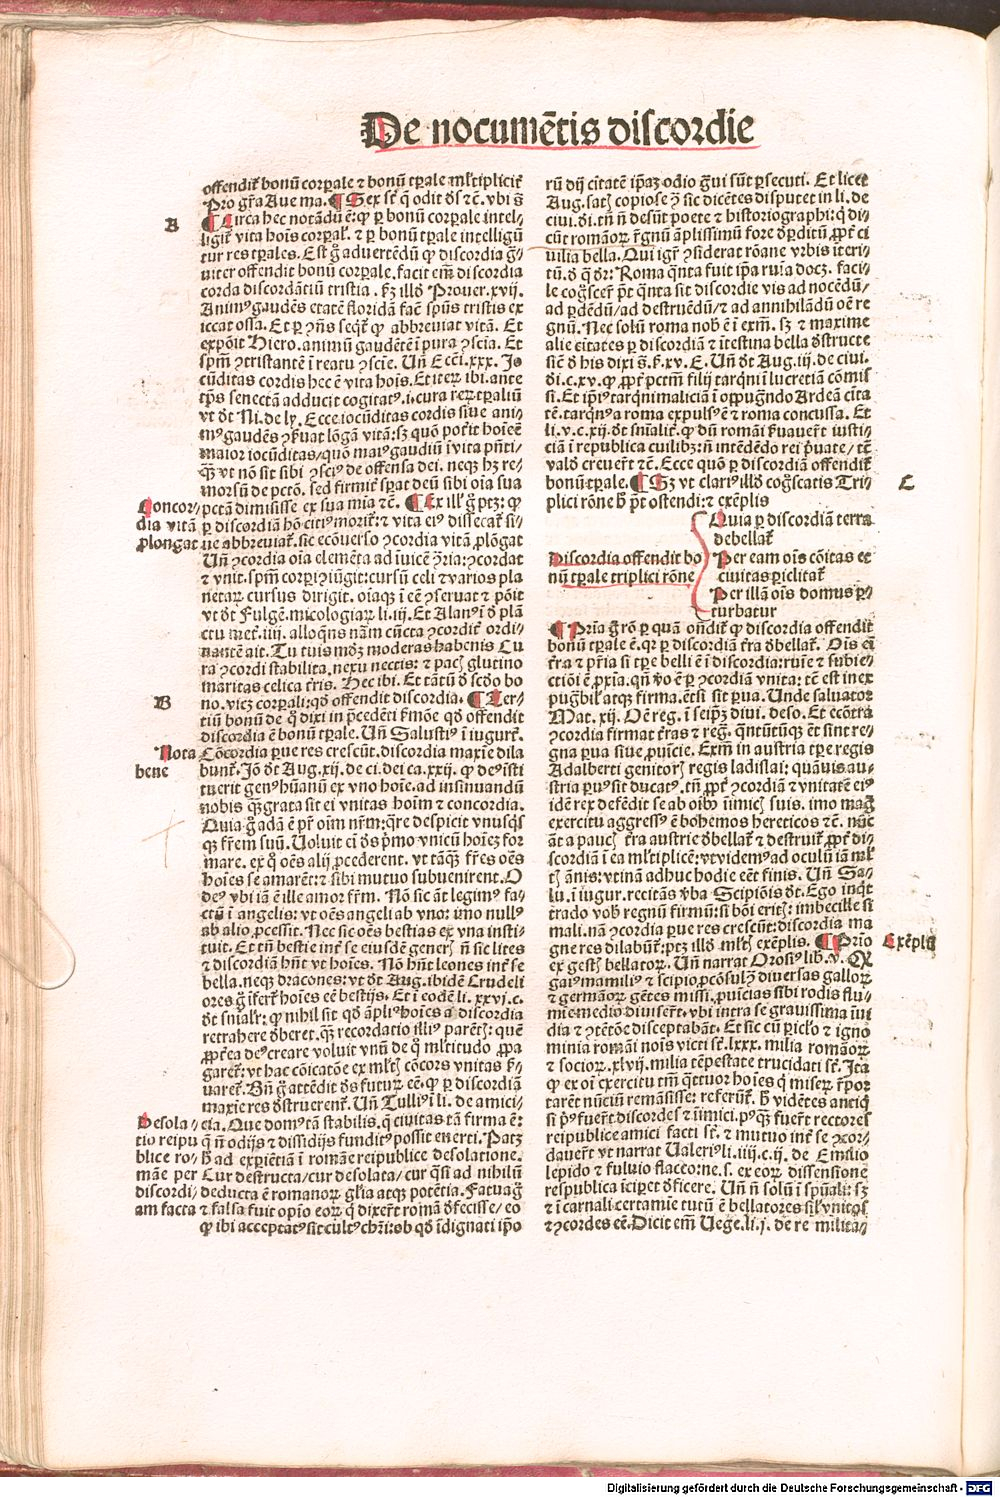 De nocumētis discordie
offendit᷑ bonū corꝑale ⁊ bonū tꝑale ml̓tiplicit᷑
Pro gr̄a Aue ma. ¶ Sex sūt q̄ odit dñs ⁊c̄. vbi s̄
A
¶ Circa hec notādū ē: ꝙ ꝑ bonū corꝑale intel-
ligit᷑ vita hoīs corꝑal᷑. ⁊ ꝑ bonū tꝑale intelligūt
tur res tꝑales. Est g̊ aduertēdū ꝙ discordia g̊-
uiter offendit bonū corꝑale. facit em̄ discordia
corda discordātiū tristia. ẜm illd̓ Prouer. xvij.
Animꝰ gaudēs etatē floridā fac̄. spūs tristis ex
iccat ossa. Et ꝑ ꝯn̄s seqt᷑ ꝙ abbreuiat vitā. Et
expōit Hiero. animū gaudētē ī pura ꝯscīa. Et
spm̄ ꝯtristantē ī reatu ꝯscīe. Un̄ Eccī. xxx. Jo
cūditas cordis hec ē vita hoīs. Et iteꝝ ibi. ante
tp̄s senectā adducit cogitatꝰ. i. cura reꝝ tꝑaliū
vt dt Ni. de ly. Ecce. iocūditas cordis siue ani-
mꝰ gaudēs ꝯẜuat lōgā vitā: sꝫ quō pot̄it hoīeē
maior iocūditas/quō maiꝰ gaudiū ī vita pn̄ti-
qͣꝫ vt nō sit sibi ꝯsciꝰ de offensa dei. neqꝫ hꝫ re-
morsū de pctō. sed firmit᷑ sꝑat deū sibi oīa sua
Concor-
dia vitā
ꝓlongat
pctā dimisisse ex sua mīa ⁊c̄. ¶ Ex ill̓ g̊ ptꝫ: ꝙ
ꝑ discordiā hō citiꝰ morit᷑: ⁊ vita eiꝰ dissecat᷑ si-
ue abbreuiat᷑. sic ecōuerso ꝯcordia vitā ꝓlōgat
Un̄ ꝯcordia oīa elemēta ad īuicē ꝯrīa: ꝯcordat
⁊ vnit. spm̄ corpīꝯiūgit: cursū celi ⁊ varios pla
netaꝝ cursus dirigit. oīaqꝫ ī eē ꝯseruat ⁊ pōit
vt dt Fulgē. micologiaꝝ li. iij. Et Alanꝰ ī d̓ plā
ctu met᷑. iiij. alloqn̄s nām cūcta ꝯcordit᷑ ordi-
nantē ait. Tu tuis mōꝫ moderas habenis Cu
ra ꝯcordi stabilita. nexu nectis: ⁊ pacꝭ glutino
maritas celica t̄ris. Hec ibi. Et tātū d̓ scd̓o bo
B
no. vicꝫ corꝑali: qd̓ offendit discordia. ¶ Ter-
tiū bonū de q̊ dixi in p̄cedēti ẜmōe qd̓ offendit
discordia ē bonū tꝑale. Un̄ Salustiꝰ ī iugurt᷑.
Nota
bene
Cōcordia ꝑue res crescūt. discordia maxīe dila
bunt᷑. Jō dt Aug. xij. de ci. dei ca. xxij. ꝙ deꝰ īsti
tuerit genꝰ hūanū ex vno hoīe. ad insinuandū
nobis qͣꝫ grata sit ei vnitas hoīm ⁊ concordia.
Quia g̊ adā ē pr̄ oīm nr̄m: qͣre despicit vnusqͥs
qꝫ fr̄em suū. Uoluit ei̓ dn̄s p̄mo vnicū hoīeꝫ for
mare. ex q̊ oēs alij ꝓcederent. vt tāqͣꝫ fr̄es oēs
hoīes se amarēt: ⁊ sibi mutuo subuenirent. O
deꝰ vbi iā ē ille amor fr̄m. Nō sic āt legimꝰ fa-
ctū ī angelis: vt oēs angeli ab vno: imo nullꝰ
ab alio ꝓcessit. Nec sic oēs bestias ex vna insti-
tuit. Et tn̄ bestie int᷑ se eiusdē generꝭ n̄ sic lites
⁊ discordiā hn̄t vt hoīes. Nō hn̄t leones int᷑ se
bella. neqꝫ dracones: vt dt Aug. ibidē Crudeli
ores g̊ īfert᷑ hoīes eē bestijs. Et ī eodē li. xxvi. c.
dt snīalr̄: ꝙ nihil sit qd̓ āpliꝰ hoīes a discordia
retrahere d̓beret. qͣꝫ recordatio illiꝰ parētꝭ: quē
ꝓpt̄ea deꝰ creare voluit vnū de q̊ ml̓titudo ꝓpa
garet᷑: vt hac cōicatōe ex ml̓tꝭ cōcors vnitas ẜ-
uaret᷑. Bn̄ g̊ attēdit dn̄s futurꝝ eē. ꝙ ꝑ discordiā
maxīe res d̓struerent᷑. Un̄ Tulliꝰ ī li. de amici-
Desola-
tio reipu
blice ro-
māe per
discordi
am facta
cia. Que domꝰ tā stabilis. q̄ ciuitas tā firma ē:
q̄ n̄ odijs ⁊ dissidijs funditꝰ possit euerti. Patꝫ
h̓ ad exꝑiētiā ī romāe reipublice desolatione.
Cur destructa/cur desolata/cur qͣsi ad nihilū
deducta ē romanoꝝ gl̓ia atqꝫ potētia. Fatua g̊
⁊ falsa fuit opīo eoꝝ q̄ dixer̄t romā d̓fecisse/eo
ꝙ ibi acceptatꝰ sit cultꝰ chr̄i: ob qd̓ īdignati ip̄o
rū dij ciētatē ip̄aꝫ odio g̊ui sūt ꝑsecuti. Et licet
Aug. satꝭ copiose ꝯ̄ sic dicētes disputet in li. de
ciui. di. tn̄ n̄ desūt poete ⁊ historiographi: q̄ di-
cūt romanoꝝ r̄gnū āplissimū fore d̓ꝑditū ꝓpt̄ ci
uilia bella. Qui igi᷑ ꝯsiderat rōane vrbis iteri-
tū. d̓ q̊ dr̄: Roma qͣnta fuit ip̄a ruīa docꝫ. faci-
le cog̊scet᷑ p̄t qͣnta sit discordie vis ad nocēdū/
ad ꝑdēdū/ad destruēdū/⁊ ad annihilādū oē re
gnū. Nec solū roma nob̓ ē ī exm̄. sꝫ ⁊ maxime
alie citates ꝑ discordiā ⁊ ītestina bella d̓structe
sic̄ d̓ his dixi s̄. ẜ. xv. E. Un̄ dt Aug. iij. de ciui.
di. c. xv. ꝙ ꝓpt̄ pctm̄ filij tarqͥni ī lucretiā cōmis
si. Et ip̄iꝰ tarqͥni maliciā ī oppug̊ndo Ardeā cita
tē. tarqͥnꝰ a roma expulsꝰ ē ⁊ roma concussa. Et
li. v. c. xij. dt snīalit᷑. ꝙ dū romāi ẜuauer̄t iusti-
ciā ī republica cuilibꝫ: n̄ intēdēdo rei p̄uate/tūc
valð creuer̄t ⁊c̄. Ecce quō ꝑ discordiā offendit᷑
C
bonū tꝑale. ¶ Sꝫ vt clariꝰ illd̓ cog̊scatis Tri-
plici rōne h̓ p̄t ostendi: ⁊ exēplis
Discordia offendit bo
nū tꝑale triplici rōne
Quia ꝑ discordiā terra
debellat᷑
Per eam oīs cōitas et
ciuitas ꝑiclitat᷑
Per illā oīs domus ꝑ-
turbatur
¶ Pria g̊ rō ꝑ quā on̄dit᷑ ꝙ discordia offendit
bonū tꝑale ē. qꝛ ꝑ discordiā t̄ra d̓bellat᷑. Oīs ei̓
t̄ra ⁊ pr̄ia si tꝑe belli ē ī discordia: ruīe ⁊ subie-
ctiōi ē ꝓxīa. qn̄ v̓o ē ꝑ ꝯcordiā vnita: tc̄ est inex
pug̊bil᷑ atqꝫ firma. etsī sit ꝑua. Unde saluator
Mat. xij. Oē reg. ī seip̄ꝫ diui. deso. Et ecōtra
ꝯcordia firmat t̄ras ⁊ reg̊. qͣntūtūqꝫ ēt sint re-
gna ꝑua siue ꝓuīcie. Exm̄ in austria tꝑe regis
Adalberti genitorꝭ regis ladislai: quāuis au-
stria ꝑuꝰ sit ducatꝰ. tn̄ ꝓpt̄ ꝯcordiā ⁊ vnitatē eiꝰ
idē rex defēdit se ab oībꝰ inīmicꝭ suis. imo mag̊
exercitu aggressꝰ ē bohemos hereticos ⁊c̄. nūc
āt a paucꝭ t̄ra austrie d̓bellat᷑ ⁊ destruit᷑ ꝓpt̄ di-
scordiā ī ea ml̓tiplicē: vt videmꝰ ad oculū iā ml̓
tꝭ ānis: vtinā adhuc hodie eēt finis. Un̄ Sa-
lu. ī iugur. recitās v̓ba Scipiōis dt. Ego inqͥt
trado vob̓ regnū firmū: si bōi eritꝭ: imbecille si
mali. nā ꝯcordia ꝑue res crescūt: discordia ma
Exēplū
gne res dilabūt᷑. ptꝫ illd̓ ml̓tꝭ exēplis. ¶ Prīo
ex gestꝭ bellatoꝝ. Un̄ narrat Orosiꝰ lib. v. Q̄
gaiꝰ mamiliꝰ ⁊ scipio ꝓcōsulꝫ diuersas galloꝝ
⁊ germāoꝝ gētes missi. ꝓuīcias sibi rodis flu-
mie medio diuiser̄t. vbi intra se grauissima īui
dia ⁊ ꝯtētōe disceptabāt. Et sic cū ꝑicl̓o ⁊ igno
minia romāi noīs victi sūt. lxxx. milia romāoꝝ
⁊ socioꝝ. xlvij. milia tēpestate trucidati sūt. Ita
ꝙ ex oī exercitu tm̄ qͣttuor hoīes q̄ miseꝝ r̄por
tarēt nūciū remāsisse: referūt᷑. h̓ vidētes antiqͥ
si p̄ꝰ fuer̄t discordes ⁊ inīmici. pꝰqͣꝫ fuer̄t rectores
reipublice amici facti sūt. ⁊ mutuo int᷑ se ꝯcor-
dauer̄t vt narrat Ualeriꝰ li. iiij. c. ij. de Emilio
lepido ⁊ fuluio flacco: ne. s. ex eoꝝ dissensione
respublica īciperet d̓ficere. Un̄ n̄ solū ī spūali: sꝫ
⁊ ī carnali certamīe tutū ē bellatores sil̓ vnitos
⁊ ꝯcordes eē. Dicit em̄ Uege. li. j. de re milita-
Digitalisierung gefördert durch die Deutsche Forschungsgemeinschaft - DFG